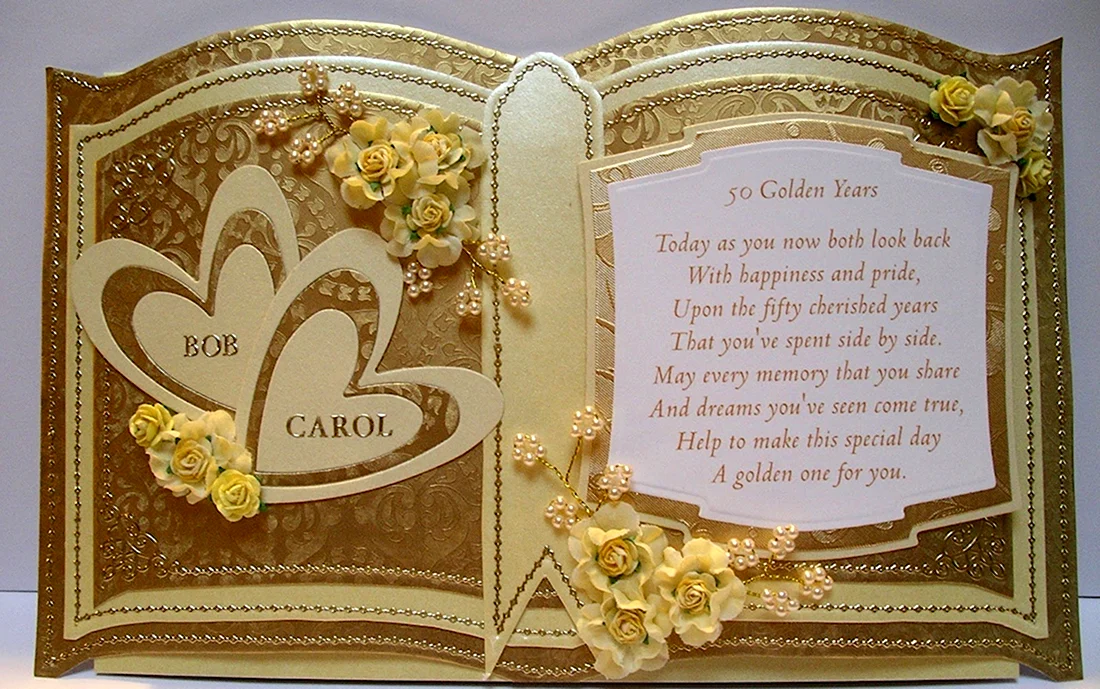 BOB
CAROL
50 Golden Years
Today as you now both look back
With happiness and pride,
Upon the fifty cherished years
That you've spent side by side.
May every memory that you share
And dreams you've seen come true,
Help to make this special day
A golden one for you.